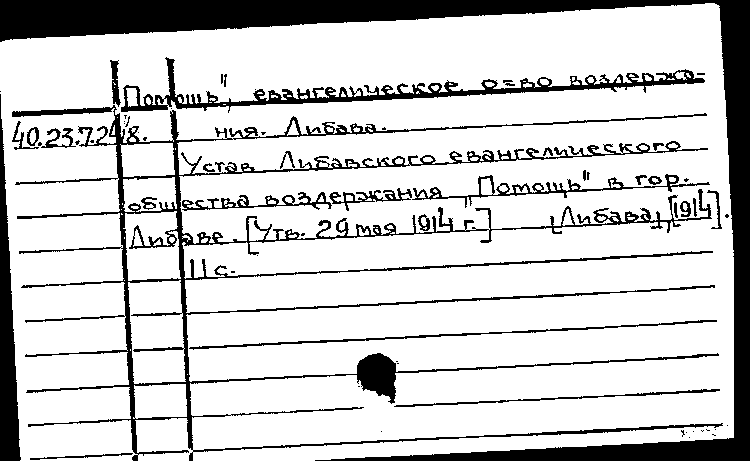 „Помощь", евангелическое о=во воздержа-
40.23.7.24/8. ния. Либава.
Устав Либавского евангелического
общества воздержания „Помощь" в гор.
Либаве. [Утв. 29 мая 1914 г.] [Либава], [1914].
11 с.